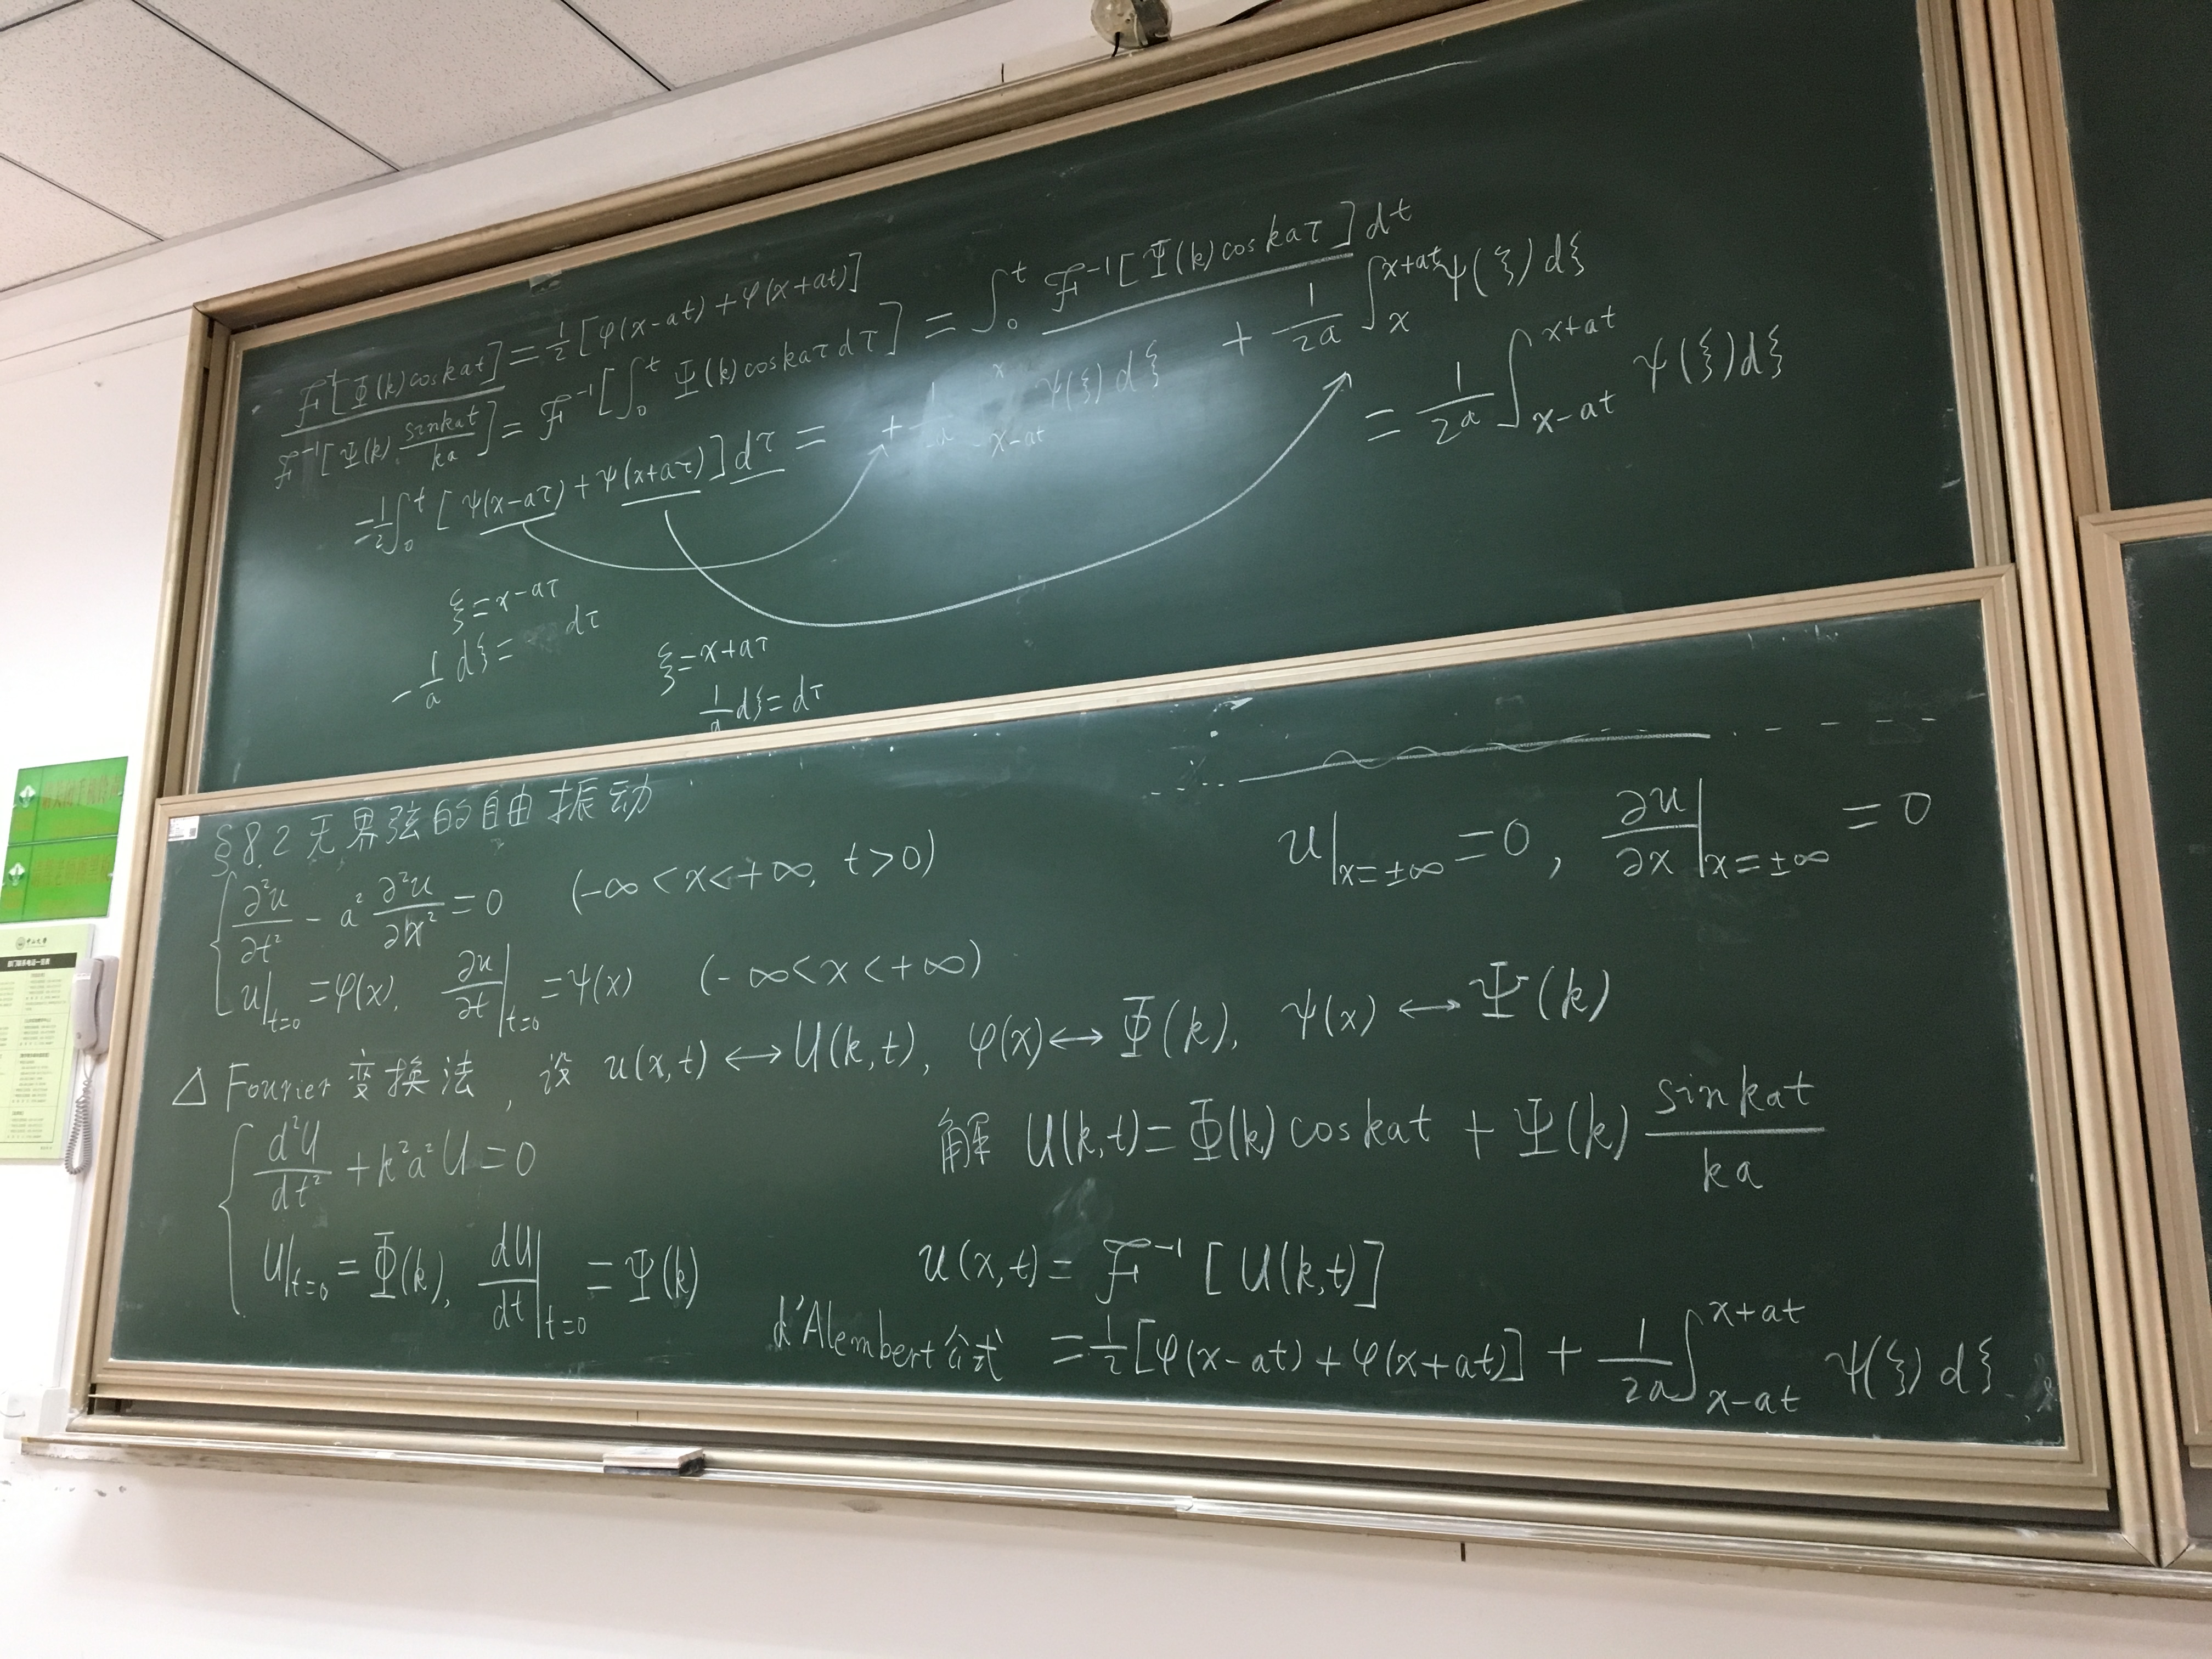 F⁻¹[Φ(k)coskat] = 1/2[φ(x-at)+φ(x+at)]
F⁻¹[Ψ(k) sinkat/ka] = F⁻¹[∫₀ᵗ Ψ(k)coskaτdτ] = ∫₀ᵗ F⁻¹[Ψ(k)coskaτ]dt
= 1/2 ∫₀ᵗ [ψ(x-aτ)+ψ(x+aτ)]dτ = + 1/2a ∫_{x-at}^{x} ψ(ξ)dξ + 1/2a ∫_{x}^{x+at} ψ(ξ)dξ
= 1/2a ∫_{x-at}^{x+at} ψ(ξ)dξ
ξ=x-aτ
-1/a dξ= dτ
ξ=x+aτ
1/a dξ=dτ
§8.2 无界弦的自由振动
∂²u/∂t² - a² ∂²u/∂x² = 0 (-∞<x<+∞, t>0)
u|t=0 = φ(x), ∂u/∂t|t=0 = ψ(x) (-∞<x<+∞)
u|x=±∞ = 0, ∂u/∂x|x=±∞ = 0
△ Fourier 变换法, 设 u(x,t)↔U(k,t), φ(x)↔Φ(k), ψ(x)↔Ψ(k)
d²U/dt² + k²a²U = 0
U|t=0 = Φ(k), dU/dt|t=0 = Ψ(k)
解 U(k,t)=Φ(k)coskat + Ψ(k) sinkat/ka
u(x,t) = F⁻¹[U(k,t)]
d'Alembert公式 = 1/2[φ(x-at)+φ(x+at)] + 1/2a ∫_{x-at}^{x+at} ψ(ξ)dξ
中山大学